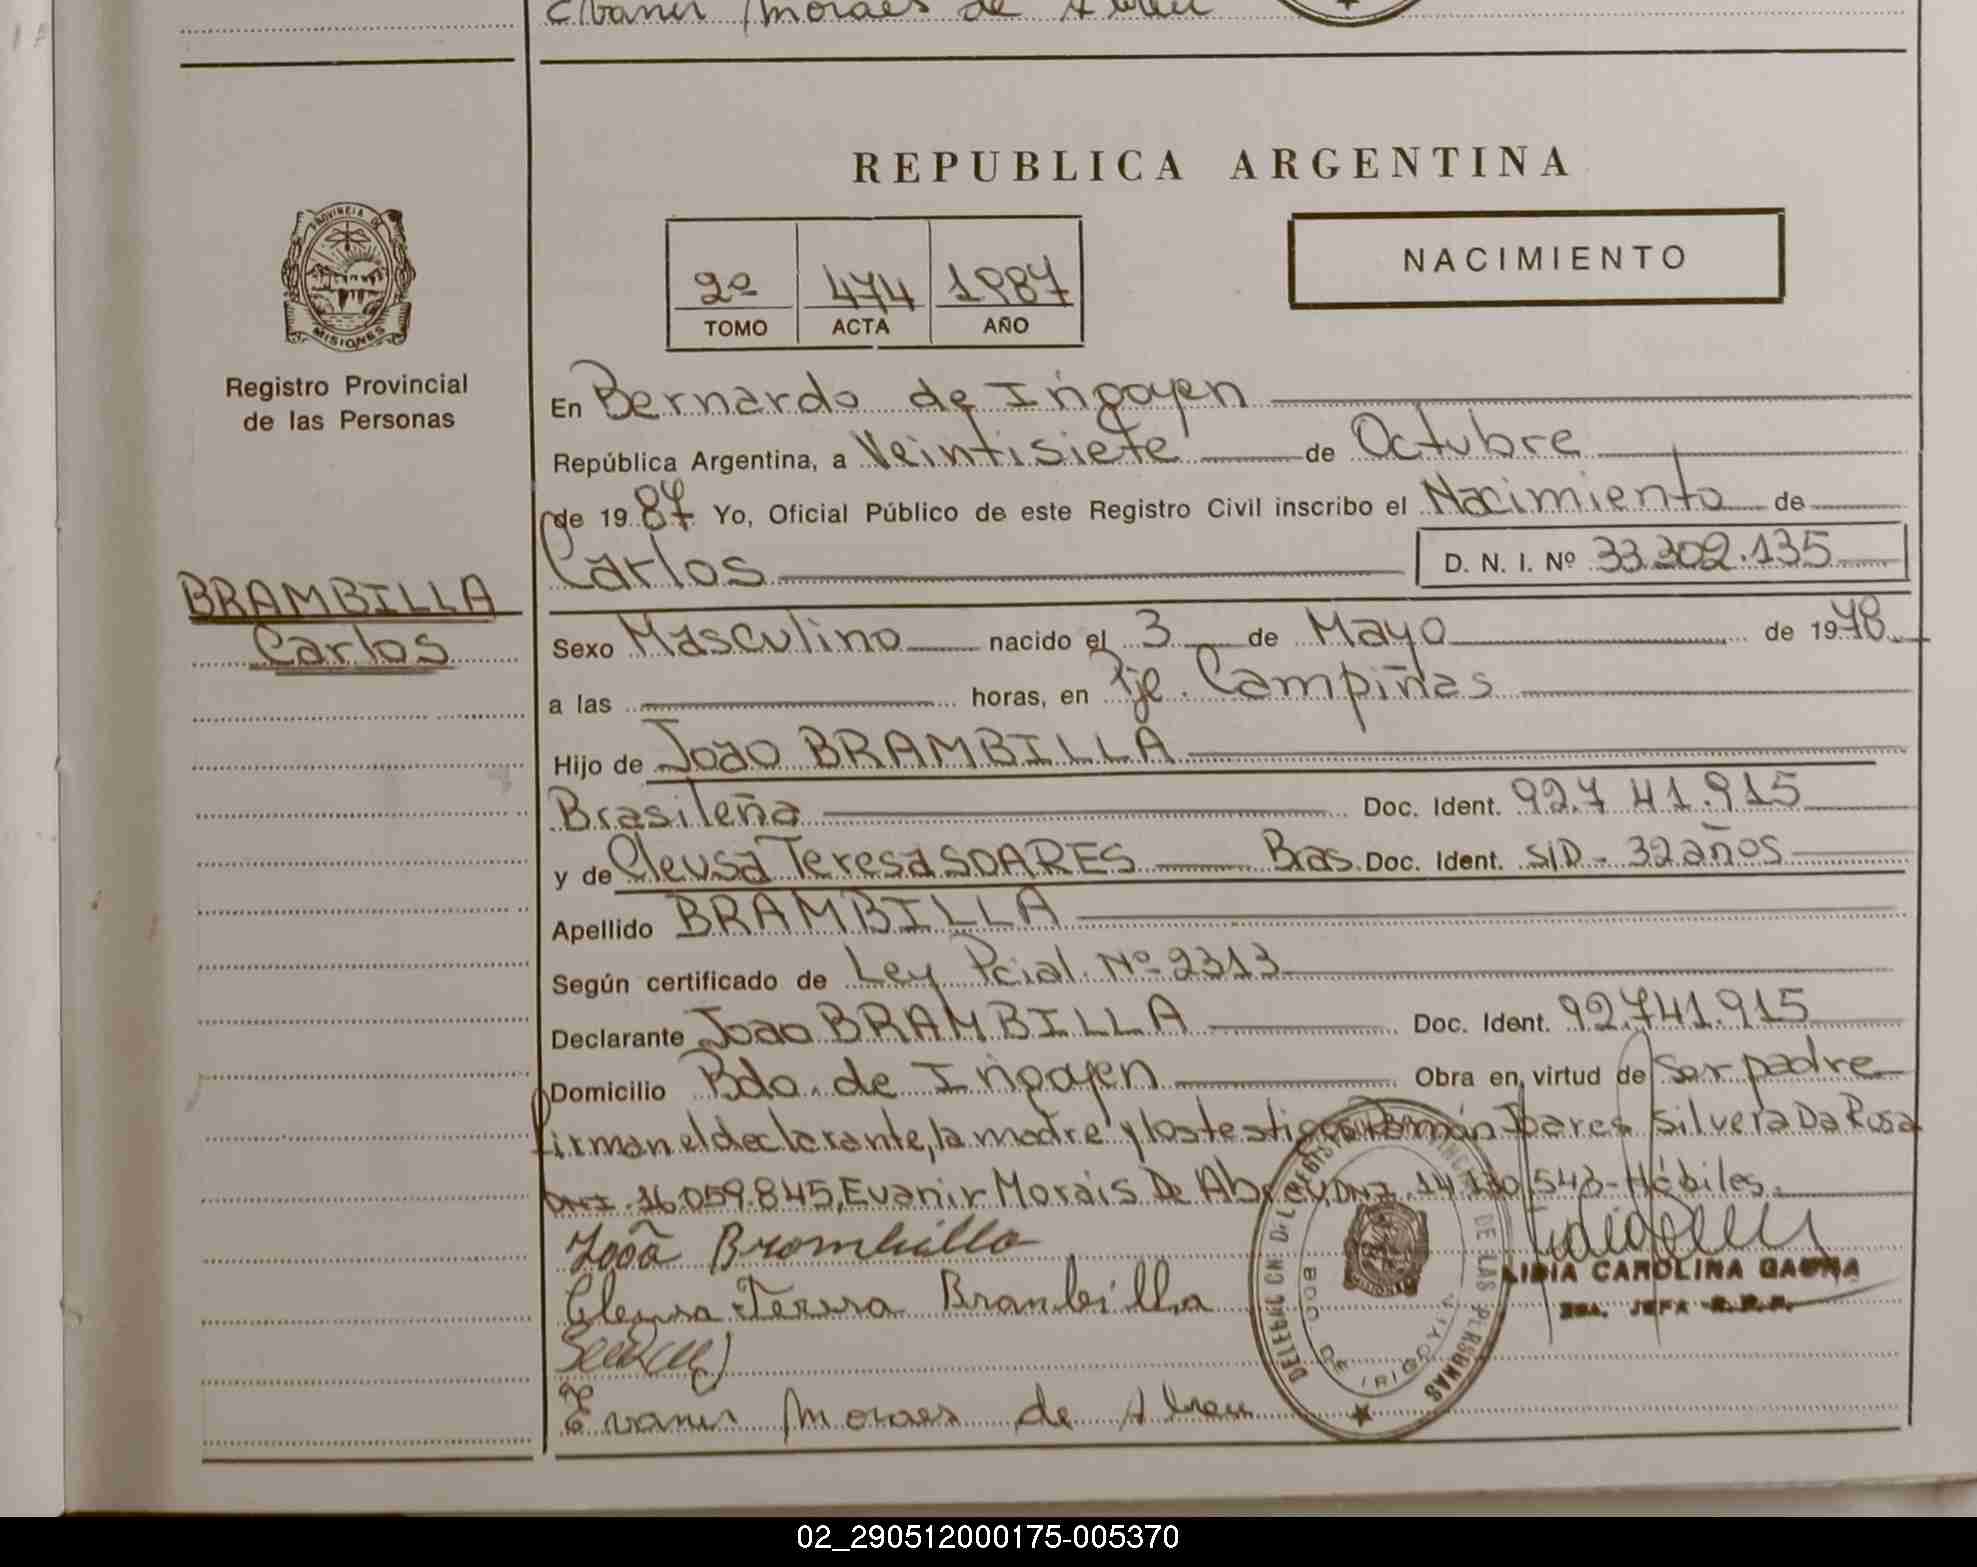 Evanir Moraes de Abreu
REPUBLICA ARGENTINA
NACIMIENTO
2º 474 1987
TOMO ACTA AÑO
PROVINCIA DE
MISIONES
Registro Provincial
de las Personas
BRAMBILLA
Carlos
En Bernardo de Irigoyen
República Argentina, a Veintisiete de Octubre
de 1987 Yo, Oficial Público de este Registro Civil inscribo el Nacimiento de
Carlos D. N. I. Nº 33.302.135
Sexo Masculino nacido el 3 de Mayo de 1978
a las horas, en Pje. Campiñas
Hijo de Joao BRAMBILLA
Brasileña Doc. Ident. 92.741.915
y de Cleusa Teresa SOARES Bras. Doc. Ident. S/D - 32 años
Apellido BRAMBILLA
Según certificado de Ley Pcial. Nº 2313
Declarante Joao BRAMBILLA Doc. Ident. 92.741.915
Domicilio Bdo. de Irigoyen Obra en virtud de Ser padre
Firman el declarante, la madre y los testigos Román Silvera Da Rosa
DNI. 16.059.845, Evanir Morais De Abreu, DNI. 14.130.543 - Hábiles.
João Brambilla
Cleusa Teresa Brambilla
Evanir Moraes de Abreu
LIDIA CAROLINA GAUNA
JEFA R.P.P.
DELEGACION DEL REGISTRO PROVINCIAL DE LAS PERSONAS
BDO. DE IRIGOYEN
02_290512000175-005370